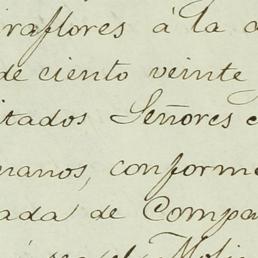 iraflores á la
de ciento veinte
itados Señores
manos, conforme
ada de Compa